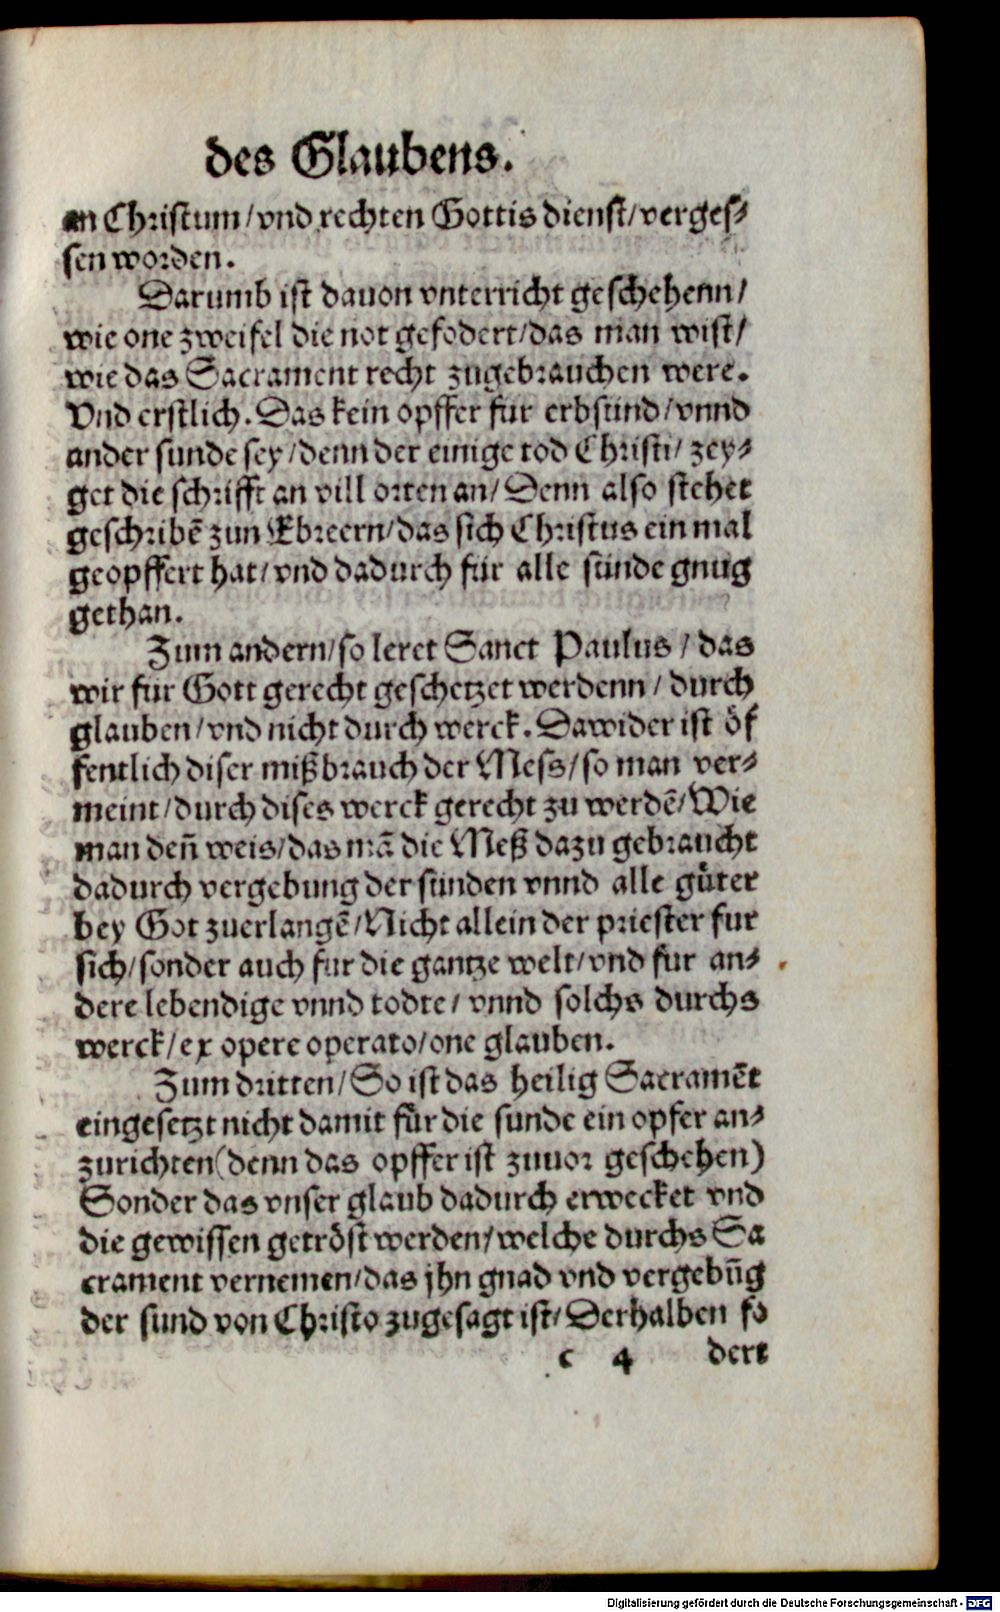 des Glaubens.
an Christum/vnd rechten Gottis dienst/verges-
sen worden.
Darumb ist dauon vnterricht geschehenn/
wie one zweifel die not gefodert/das man wist/
wie das Sacrament recht zugebrauchen were.
Vnd erstlich. Das kein opffer fur erbsund/vnnd
ander sunde sey/denn der einige tod Christi/zey-
get die schrifft an vill orten an/Denn also stehet
geschribē zun Ebreern/das sich Christus ein mal
geopffert hat/vnd dadurch für alle sünde gnug
gethan.
Zum andern/so leret Sanct Paulus/das
wir für Gott gerecht geschetzet werdenn/durch
glauben/vnd nicht durch werck. Dawider ist öf
fentlich diser mißbrauch der Mess/so man ver-
meint/durch dises werck gerecht zu werdē/Wie
man deñ weis/das mā die Meß dazu gebraucht
dadurch vergebung der sunden vnnd alle güter
bey Got zuerlangē/Nicht allein der priester fur
sich/sonder auch fur die gantze welt/vnd fur an-
dere lebendige vnnd todte/vnnd solchs durchs
werck/ex opere operato/one glauben.
Zum dritten/So ist das heilig Sacramēt
eingesetzt nicht damit für die sunde ein opfer an-
zurichten(denn das opffer ist zuuor geschehen)
Sonder das vnser glaub dadurch erwecket vnd
die gewissen getröst werden/welche durchs Sa
crament vernemen/das jhn gnad vnd vergebūg
der sund von Christo zugesagt ist/Derhalben fo
c 4 dert
Digitalisierung gefördert durch die Deutsche Forschungsgemeinschaft - DFG